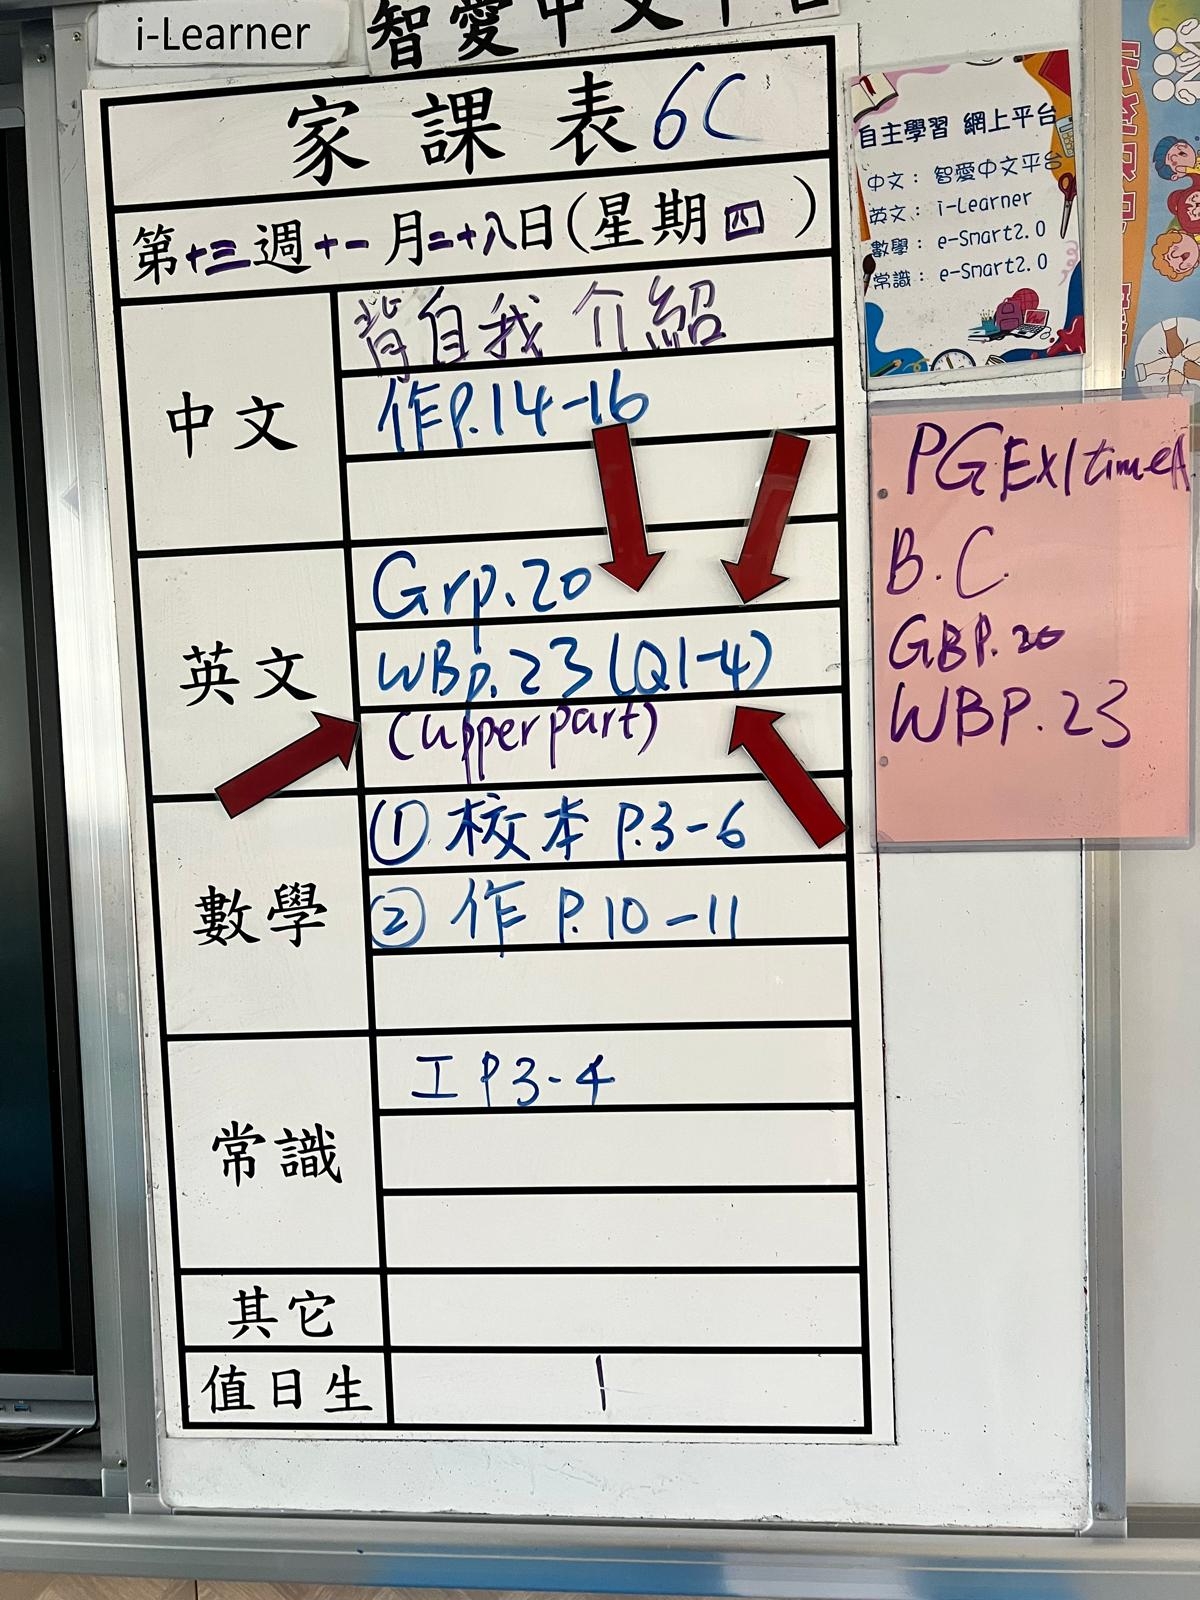 i-Learner
智愛中文平台
家課表6C
第十三週十一月二十八日(星期四)
中文
背自我介紹
作P.14-16
英文
Grp.20
WBp.23(Q1-4)
(upper part)
數學
① 校本 P.3-6
② 作 P.10-11
常識
工 P3-4
其它
值日生
1
自主學習 網上平台
中文: 智愛中文平台
英文: i-Learner
數學: e-Smart2.0
常識: e-Smart2.0
PGEx/timeA
B.C.
GBP.20
WBP.23